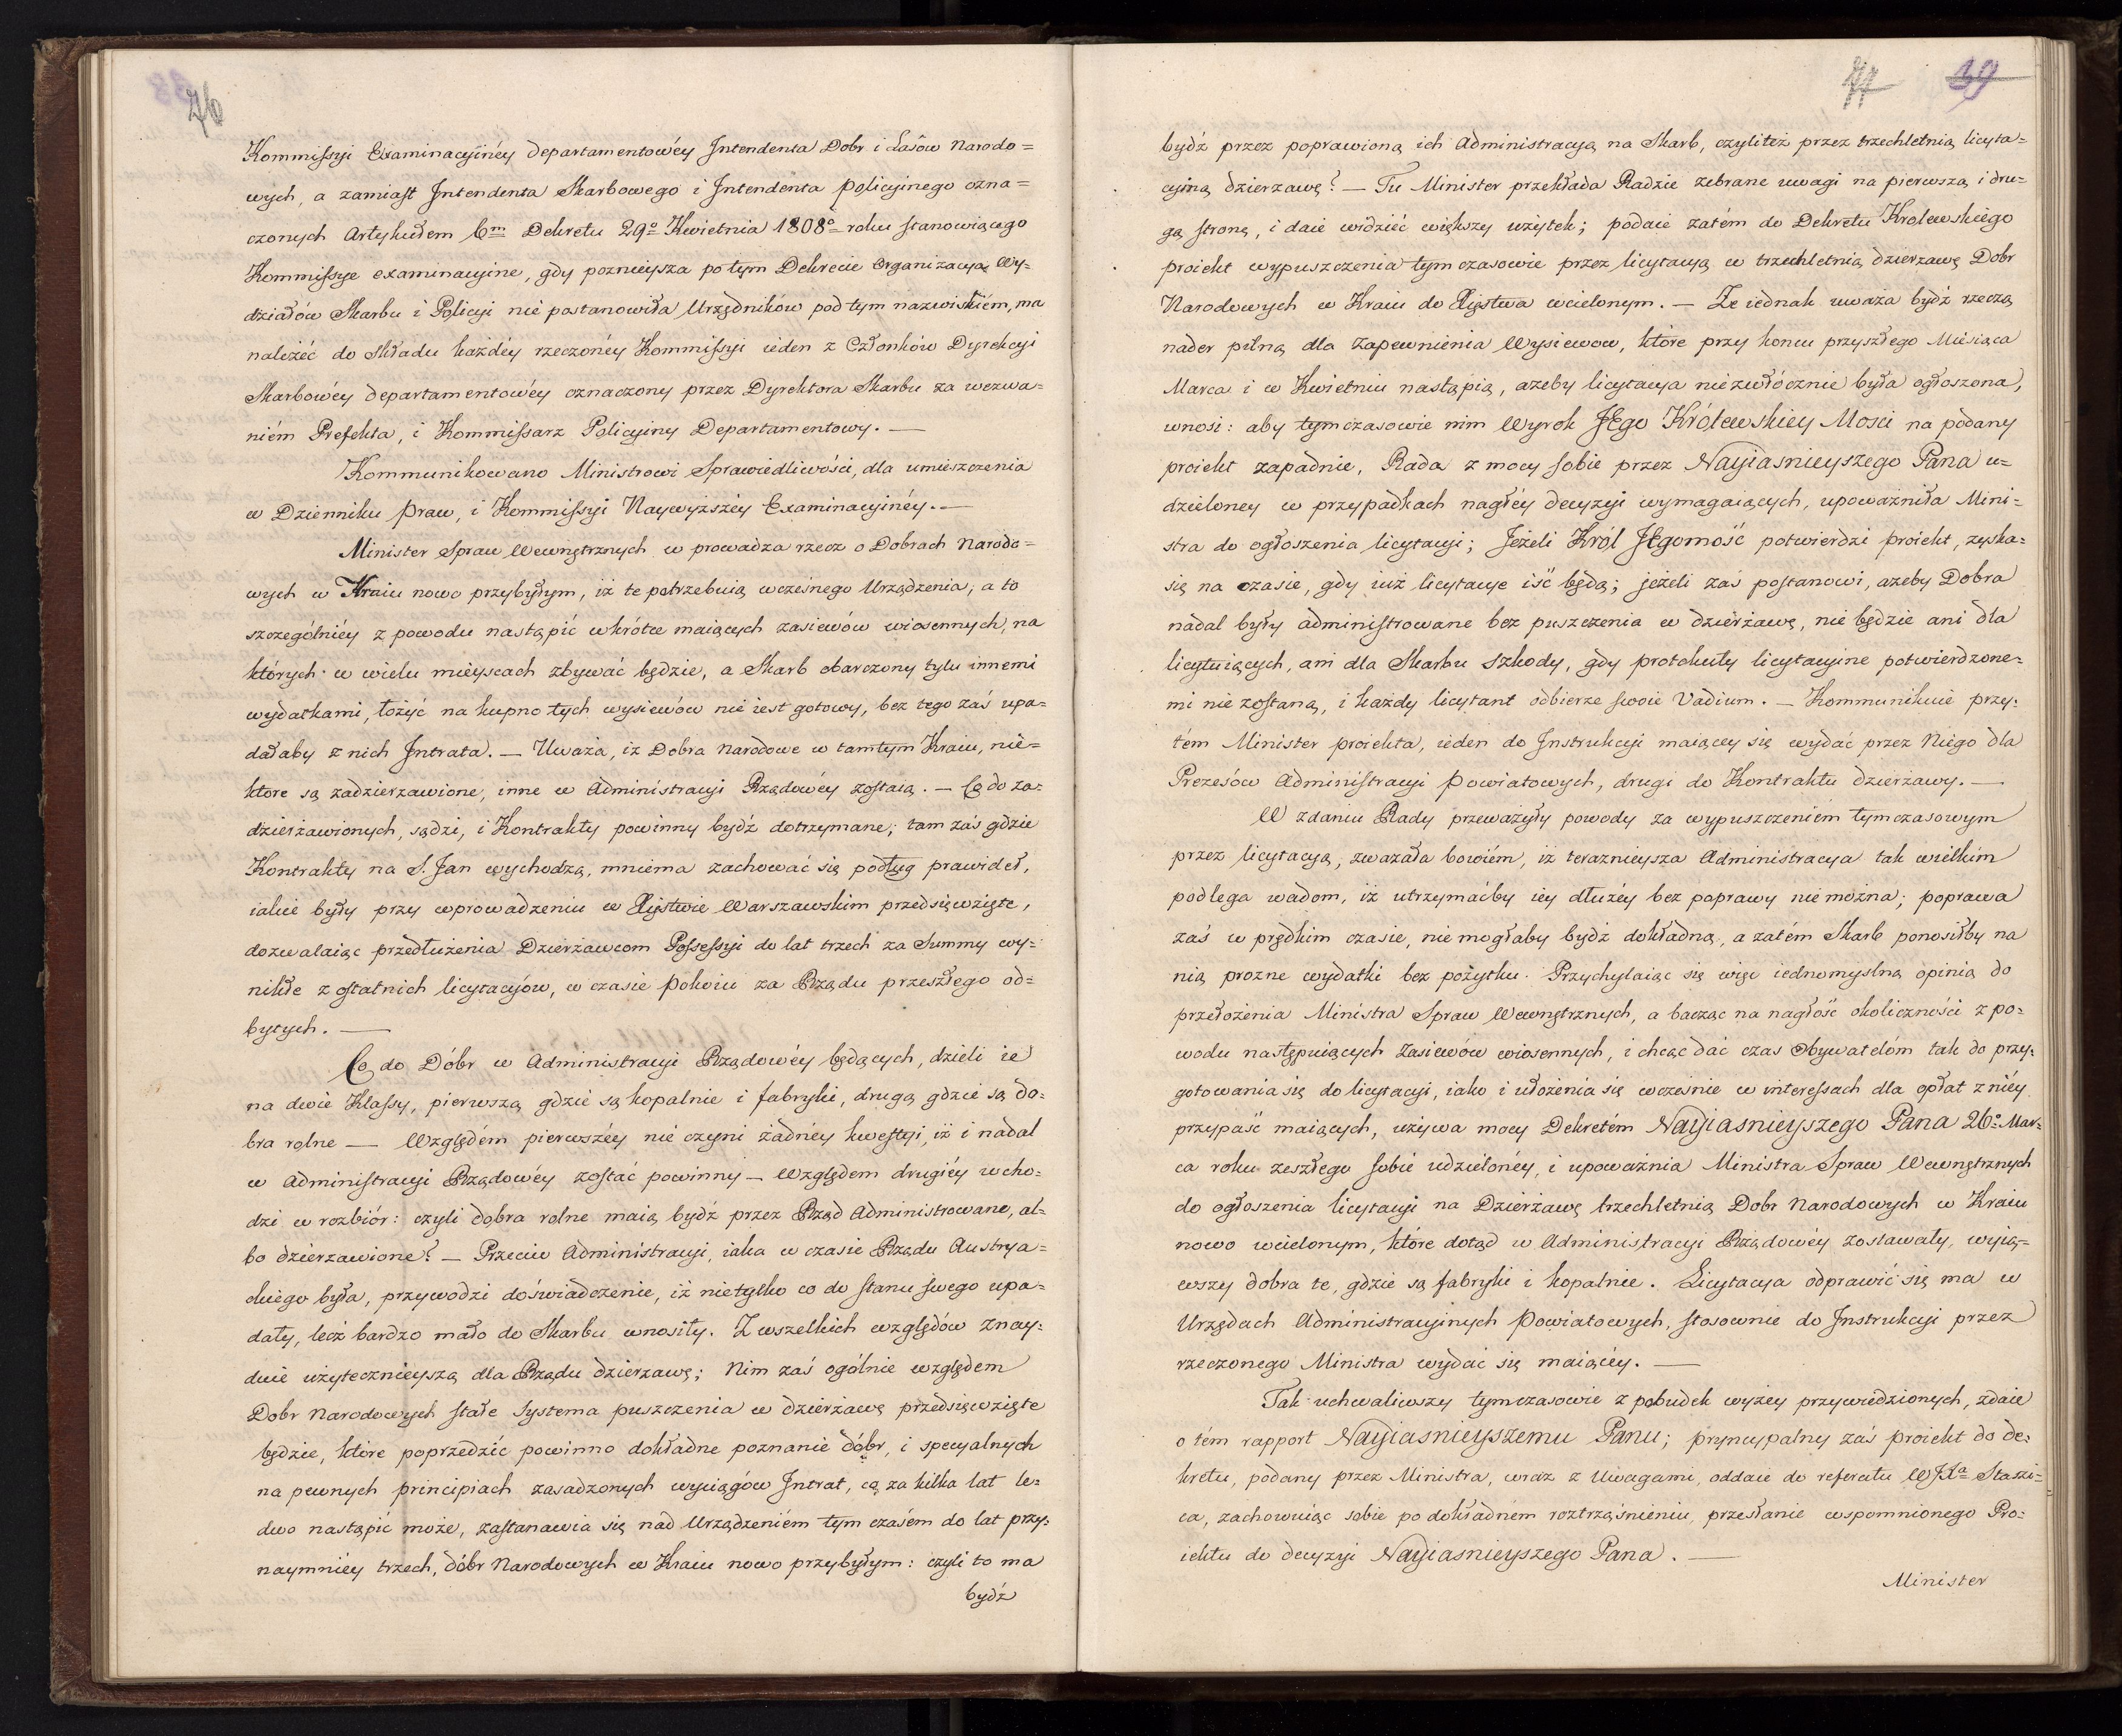 76
Kommissyi Examinacyinéy departamentowéy Jntendenta Dobr i Lasôw Narodo=
wych, a zamiast Jntendenta Skarbowego i Jntendenta Policyinego ozna=
czonych Artykułem 6m Dekretu 29o Kwietnia 1808o roku stanowiącego
Kommissye examinacyine, gdy poznieysza po tym Dekrecie Organizacya Wy=
działów Skarbu i Policyi nie postanowiła Urzędnikow pod tym nazwiskiém, ma
należéć do składu każdéy rzeczonéy Kommissyi ieden z Członków Dyrekcyi
Skarbowéy departamentowéy oznaczony przez Dyrektora Skarbu za wezwa=
niém Prefekta, i Kommissarz Policyiny Departamentowy. —
Kommunikowano Ministrowi Sprawiedliwości, dla umieszczenia
w Dzienniku Praw, i Kommissyi Naywyższéy Examinacyinéy. —
Minister Spraw Wewnętrznych w prowadza rzecz o Dobrach Narodo=
wych w Kraiu nowo przybyłym, iż te potrzebuią wczesnego Urządzenia, a to
szczególniéy z powodu nastąpić wkrótce maiących zasiewów wiosennych, na
których w wielu mieyscach zbywać będzie, a Skarb obarczony tylu innemi
wydatkami, łożyć na kupno tych wysiewów nie iest gotowy, bez tego zaś upa=
dałaby z nich Jntrata. — Uważa, iż Dobra Narodowe w tamtym Kraiu, nie=
które są zadzierzawione, inne w Administracyi Rządowéy zostaią. — Co do za=
dzierżawionych, sądzi, i Kontrakty powinny bydź dotrzymane; tam zaś gdzie
Kontrakty na S. Jan wychodzą, mniema zachować się podług prawideł,
iakie były przy wprowadzeniu w Xięstwie Warszawskim przedsięwzięte,
dozwalaiąc przedłużenia Dzierżawcom Possessyi do lat trzech za Summy wy=
nikłe z ostatnich licytacyów, w czasie Pokoiu za Rządu przeszłego od=
bytych. —
Co do Dóbr w Administracyi Rządowéy będących, dzieli ie
na dwie Klassy, pierwszą gdzie są kopalnie i fabryki, drugą gdzie są do=
bra rolne — Względém pierwszéy nie czyni żadnéy kwestyi, iż i nadal
w Administracyi Rządowéy zostać powinny — Względem drugiéy wcho=
dzi w rozbiór: czyli dobra rolne maią bydź przez Rząd Administrowane, al=
bo dzierzawione? — Przeciw Administracyi, iaka w czasie Rządu Austrya=
ckiego była, przywodzi doświadczenie, iż nietylko co do stanu swego upa=
dały, lecz bardzo mało do Skarbu wnosiły. Z wszelkich względów znay=
duie użytecznieyszą dla Rządu dzierzawę; Nim zaś ogólnie względem
Dobr Narodowych stałe Systema puszczenia w dzierżawę przedsięwzięte
będzie, które poprzedzić powinno dokładne poznanie dóbr, i specyalnych
na pewnych principiach zasadzonych wyciągów Jntrat, co za kilka lat le=
dwo nastąpić może, zastanawia się nad Urządzeniém tym czasém do lat przy=
naymniéy trzech, dóbr Narodowych w Kraiu nowo przybyłym: czyli to ma
bydź
77 39
bydź przez poprawioną ich Administracyą na Skarb, czyliteż przez trzechletnią licyta=
cyiną dzierzawę? — Tu Minister przekłada Radzie zebrane uwagi na pierwszą i dru=
gą stronę, i daie widzieć większy użytek; podaie zatém do Dekretu Krolewskiego
proiekt wypuszczenia tym czasowie przez licytacyą w trzechletnią dzierzawę Dobr
Narodowych w Kraiu do Xięstwa wcielonym. — Ze iednak uważa bydź rzeczą
nader pilną dla zapewnienia Wysiewow, które przy końcu przyszłego Miesiąca
Marca i w Kwietniu nastąpią, azeby licytacya niezwłócznie była ogłoszona,
wnosi: aby tymczasowie nim Wyrok JEgo Królewskiey Mosci na podany
proiekt zapadnie, Rada z mocy sobie przez Nayiasnieyszego Pana u=
dzieloney w przypadkach nagłéy decyzyi wymagaiących, upoważniła Mini=
stra do ogłoszenia licytacyi; Jeżeli Król JEgomość potwierdzi proiekt, zyska=
się na czasie, gdy iuż licytacye iść będą; jeżeli zaś postanowi, azeby Dobra
nadal były administrowane bez puszczenia w dzierżawę, nie będzie ani dla
licytuiących, ani dla Skarbu szkody, gdy protokuły licytacyine potwierdzone=
mi nie zostaną, i każdy licytant odbierze swoie Vadium. — Kommunikuie przy=
tém Minister proiekta, ieden do Jnstrukcyi maiącey się wydać przez Niego dla
Prezesów Administracyi Powiatowych, drugi do Kontraktu dzierżawy. —
W zdaniu Rady przeważyły powody za wypuszczeniém tymczasowym
przez licytacyą, zważała bowiém, iż teraznieysza Administracya tak wielkim
podlega wadom, iż utrzymaćby iey dłużéy bez poprawy nie można; poprawa
zaś w prędkim czasie, nie mogłaby bydź dokładną, a zatém Skarb ponosiłby na
nią prozne wydatki bez pożytku. Przychylaiąc się więc iednomyslną opinią do
przełożenia Ministra Spraw Wewnętrznych, a bacząc na nagłość okoliczności z po=
wodu następuiących Zasiewów wiosennych, i chcąc dać czas Obywatelóm tak do przy=
gotowania się do licytacyi, iako i ułożenia się wcześnie w interessach dla opłat z niéy
przypaść maiących, używa mocy Dekretém Nayiasnieyszego Pana 26o Mar=
ca roku zeszłego sobie udzielonéy, i upoważnia Ministra Spraw Wewnętrznych
do ogłoszenia licytacyi na Dzierżawę trzechletnią Dobr Narodowych w Kraiu
nowo wcielonym, które dotąd w Administracyi Rządowéy zostawały, wyią=
wszy dobra te, gdzie są fabryki i kopalnie. Licytacya odprawić się ma w
Urzędach Administracyinych Powiatowych, stosownie do Jnstrukcyi przez
rzeczonego Ministra wydać się maiącéy. —
Tak uchwaliwszy tymczasowie z pobudek wyżey przywiedzionych, zdaie
o tém rapport Nayiasnieyszemu Panu; pryncypalny zaś proiekt do de=
kretu, podany przez Ministra, wraz z Uwagami, oddaie do referatu WJXa Staszi=
ca, zachowuiąc sobie po dokładném roztrząśnieniu, przesłanie wspomnionego Pro=
iektu do decyzyi Nayiasnieyszego Pana. —
Minister